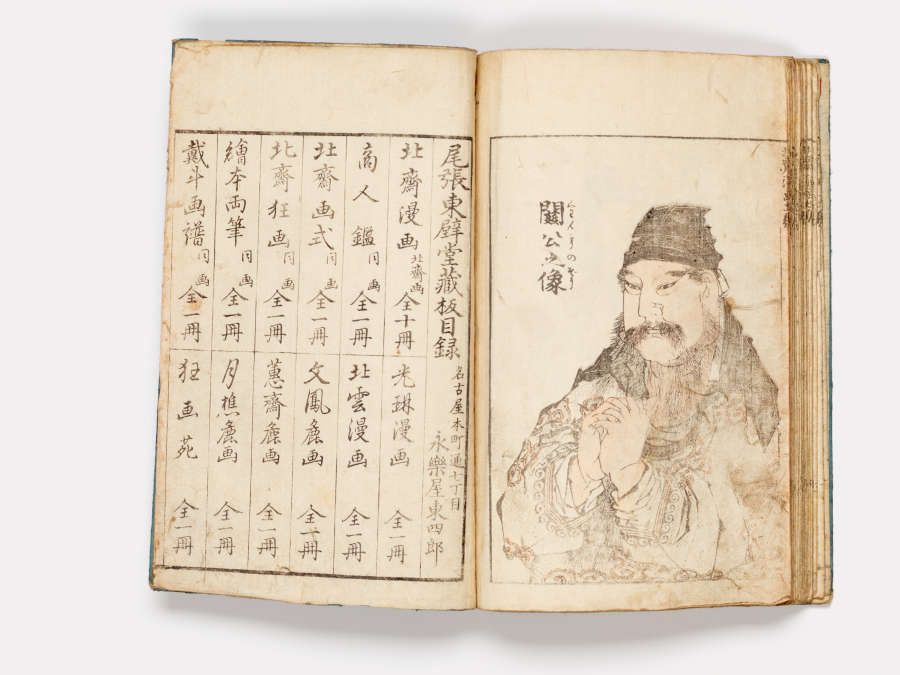 關公之像
尾張東壁堂藏板目録
名古屋本町通七丁目
永樂屋東四郎
北齋漫画 北齋画 全十冊
商人鑑 同画 全一冊
北齋画式 同画 全一冊
北齋狂画 同画 全一冊
繪本両筆 同画 全一冊
戴斗画譜 同画 全一冊
光琳漫画 全一冊
北雲漫画 全一冊
文鳳麁画 全一冊
蕙齋麁画 全一冊
月樵麁画 全一冊
狂画苑 全一冊